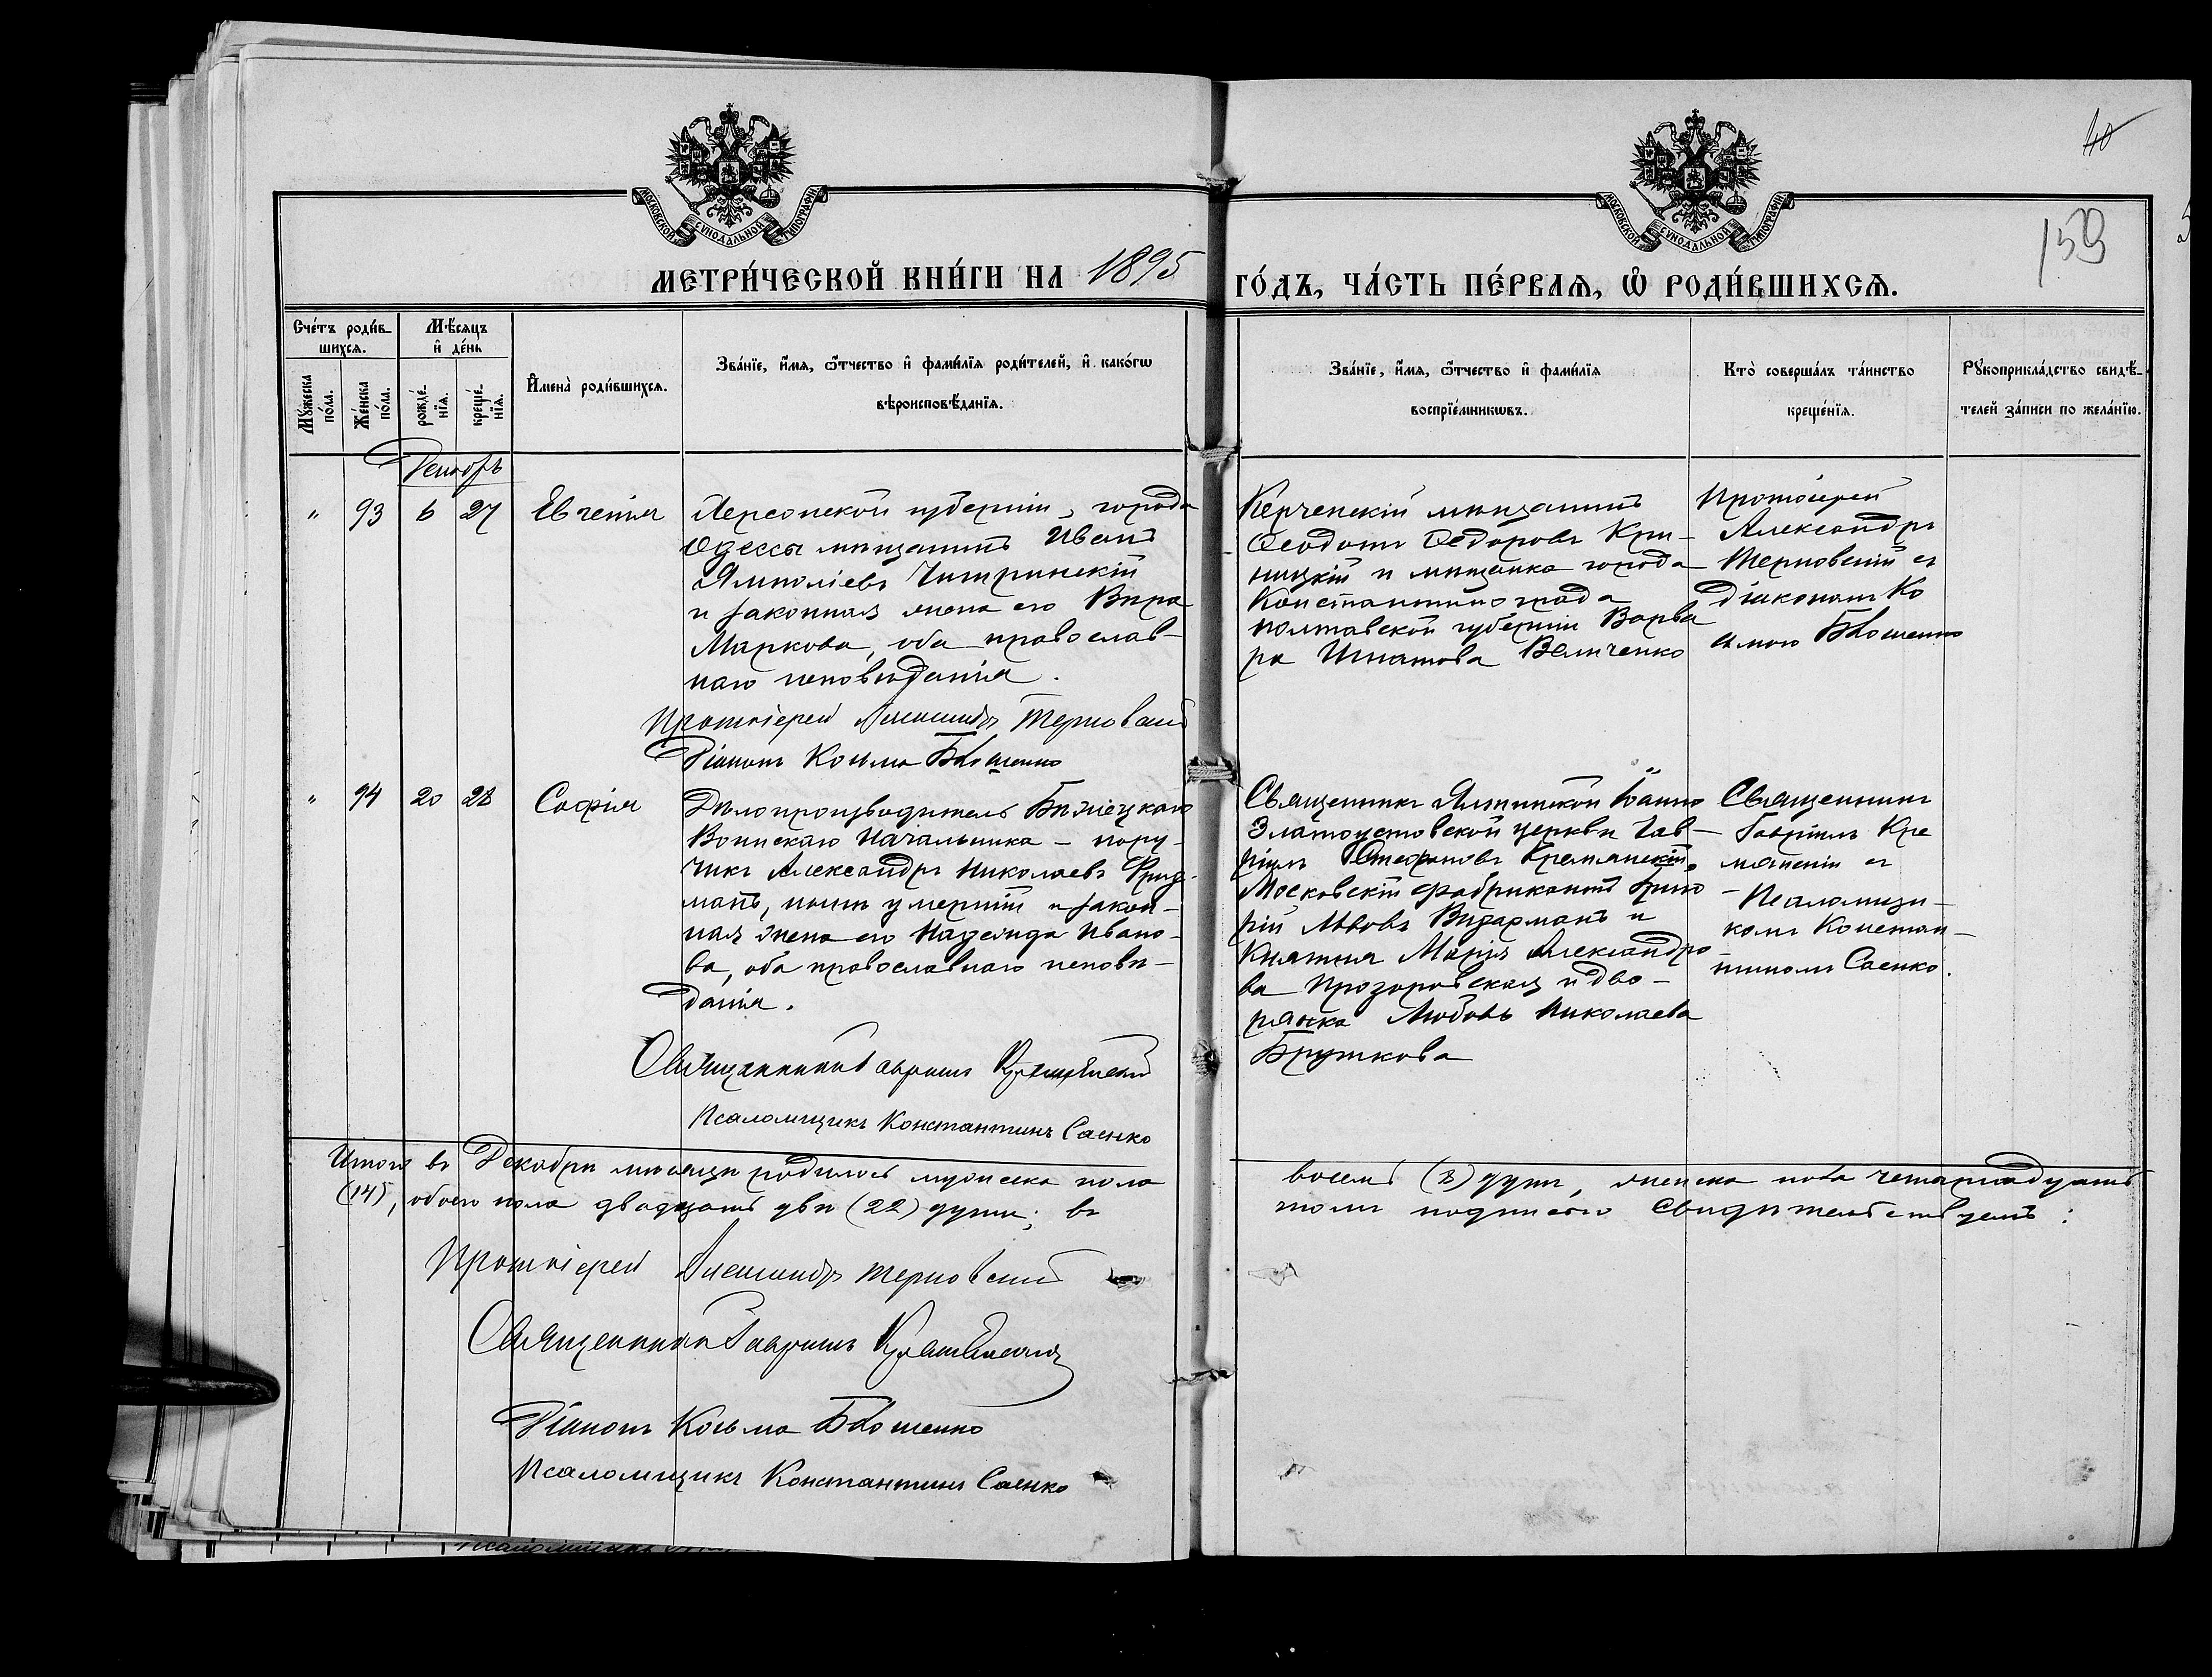 40
159
МОСКОВСКОЙ СѴНОДАЛЬНОЙ ТИПОГРАФІИ
МОСКОВСКОЙ СѴНОДАЛЬНОЙ ТИПОГРАФІИ
МЕТРИ́ЧЕСКОЙ КНИ́ГИ НА 1895 ГО́ДЪ, ЧА́СТЬ ПЕ́РВАѦ, Ѡ҆ РОДИ́ВШИХСѦ.
Сче́тъ роди́в-
шихсѧ.
Мꙋ́жеска по́ла.
Же́нска по́ла.
Мѣ́сѧцъ
и҆ де́нь
рожде́-нїѧ.
креще́-нїѧ.
И҆мена̀ роди́вшихсѧ.
Зва́нїе, и҆́мѧ, ѻ҆́тчество и҆ фами́лїѧ роди́телей, и҆ како́гѡ
вѣроисповѣ́данїѧ.
Зва́нїе, и҆́мѧ, ѻ҆́тчество и҆ фами́лїѧ
воспрїе́мникѡвъ.
Кто̀ соверша́лъ та́инство
креще́нїѧ.
Рꙋкоприкла́дство свидѣ́-
телей за́писи по жела́нїю.
Декабрь
" 93 6 27 Евгенія
Херсонской губерніи, города
Одессы мѣщанинъ Иванъ
Ямполіевъ
и законная жена его Вѣра
Маркова, оба православ-
наго исповѣданія.
Протоіерей Александръ Терновскій
Діаконъ Косьма
Керченскій мѣщанинъ
Ѳеодотъ Ѳедоровъ Кри-
ницкій и мѣщанка города
Константинограда
Полтавской губерніи Варва
ра Игнатова Величенко
Протоіерей
Александръ
Терновскій съ
Діакономъ Ко
сьмою
" 94 20 28 Софія
Дѣлопроизводитель Бѣжецкаго
Воинскаго Начальника – пору-
чикъ Александръ Николаевъ Фрид-
манъ, нынѣ умершій и закон-
ная жена его Надежда Ивано-
ва, оба православнаго исповѣ-
данія.
Священникъ Гавріилъ Кремянскій
Псаломщикъ Константинъ Саенко
Священникъ Ялтинской Іоанно
Златоустовской церкви Гав-
ріилъ Стефановъ Кремянскій,
Московскій фабрикантъ Григо
рій Львовъ Видерманъ и
Княжна Марія Александро
ва Прозоровская и дво-
рянка Любовь Николаева
Бруткова
Священникъ
Гавріилъ Кре
мянскій съ
– Псаломщи-
комъ Констан-
тиномъ Саенко.
Итого въ Декабрѣ мѣсяцѣ родилось мужеска пола восемь (8) душъ, женска пола четырнадцать
(14), обоего пола двадцать двѣ (22) души; въ томъ подписью свидѣтельствуемъ:
Протоіерей Александръ Терновскій
Священникъ Гавріилъ Кремянскій
Діаконъ Косьма
Псаломщикъ Константинъ Саенко